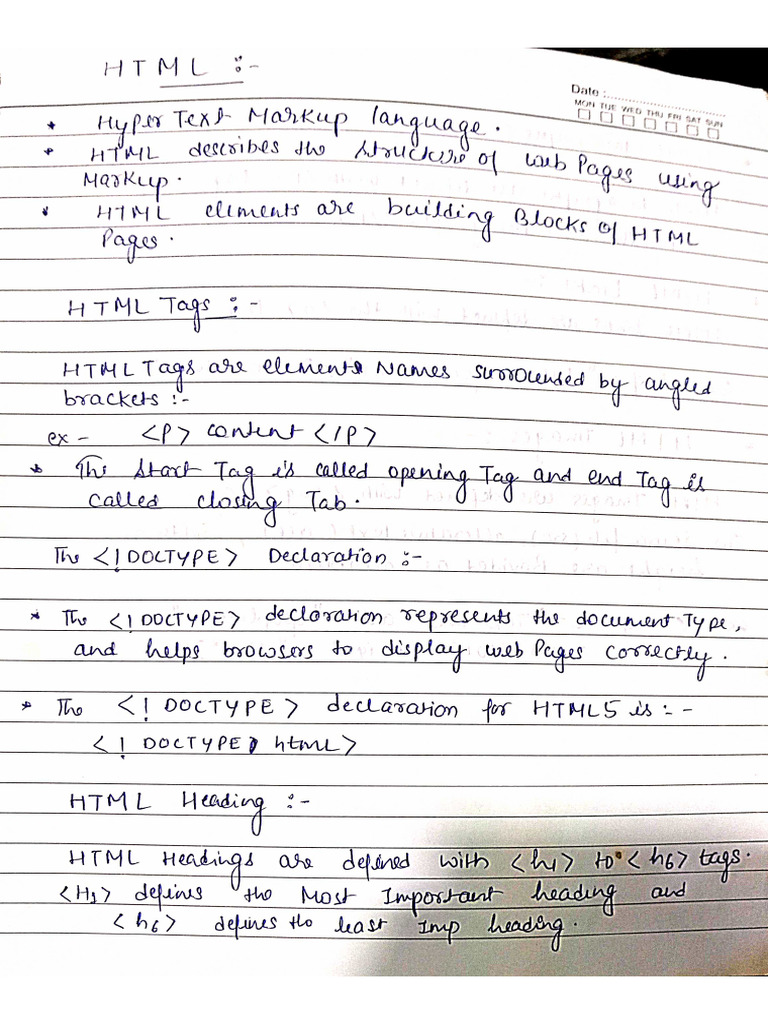 HTML :-
Date :
MON TUE WED THU FRI SAT SUN
* HyperText Markup language.
* HTML describes the structure of web Pages using
Markup.
* HTML elements are building Blocks of HTML
Pages.
HTML Tags :-
HTML Tags are elements Names surrounded by angled
brackets :-
ex - <P> content </P>
* The start Tag is called opening Tag and end Tag is
called closing Tab.
The <!DOCTYPE> Declaration :-
* The <!DOCTYPE> declaration represents the document Type,
and helps browsers to display web Pages correctly.
* The <! DOCTYPE> declaration for HTML5 is :-
<! DOCTYPE html>
HTML Heading :-
HTML Headings are defined with <h1> to <h6> tags.
<H1> defines the Most Important heading and
<h6> defines the least Imp heading.